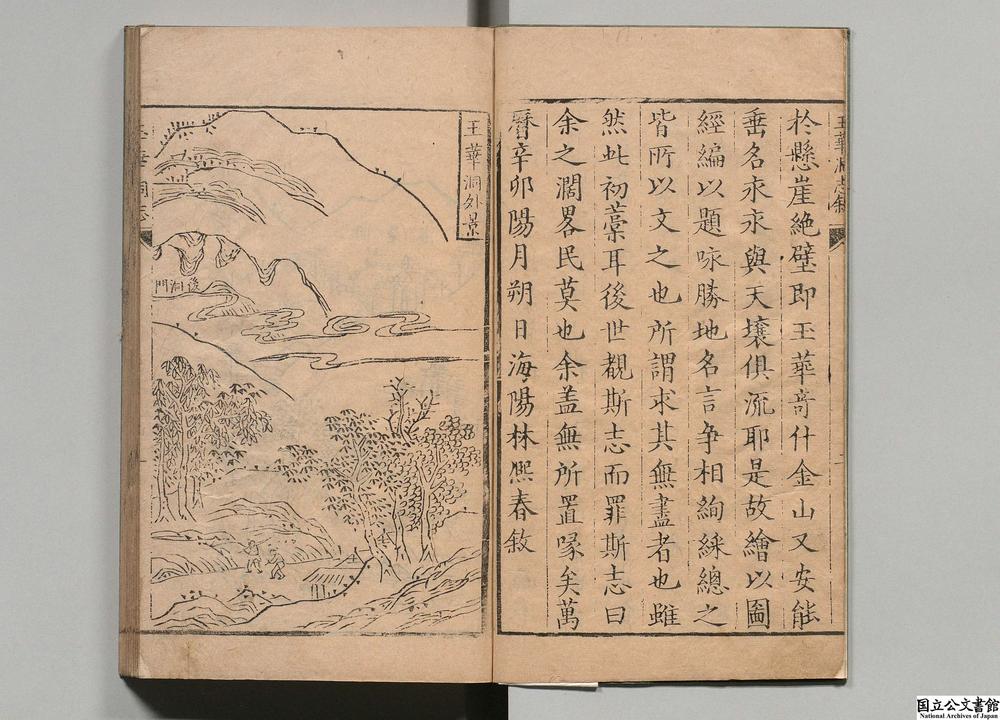 於懸崖絶壁即玉華奇什金山又安能
垂名永永與天壤俱流耶是故繪以圖
經編以題咏勝地名言争相絢綵總之
皆所以文之也所謂求其無盡者也雖
然此初藁耳後世覩斯志而罪斯志曰
余之濶畧民莫也余盖無所置喙矣萬
曆辛卯陽月朔日海陽林熈春敘
玉華洞志敘
二
玉華洞外景
後洞門
國立公文書館
National Archives of Japan